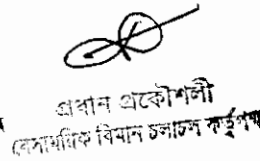 প্রধান প্রকৌশলী
বেসামরিক বিমান চলাচল কর্তৃপক্ষ